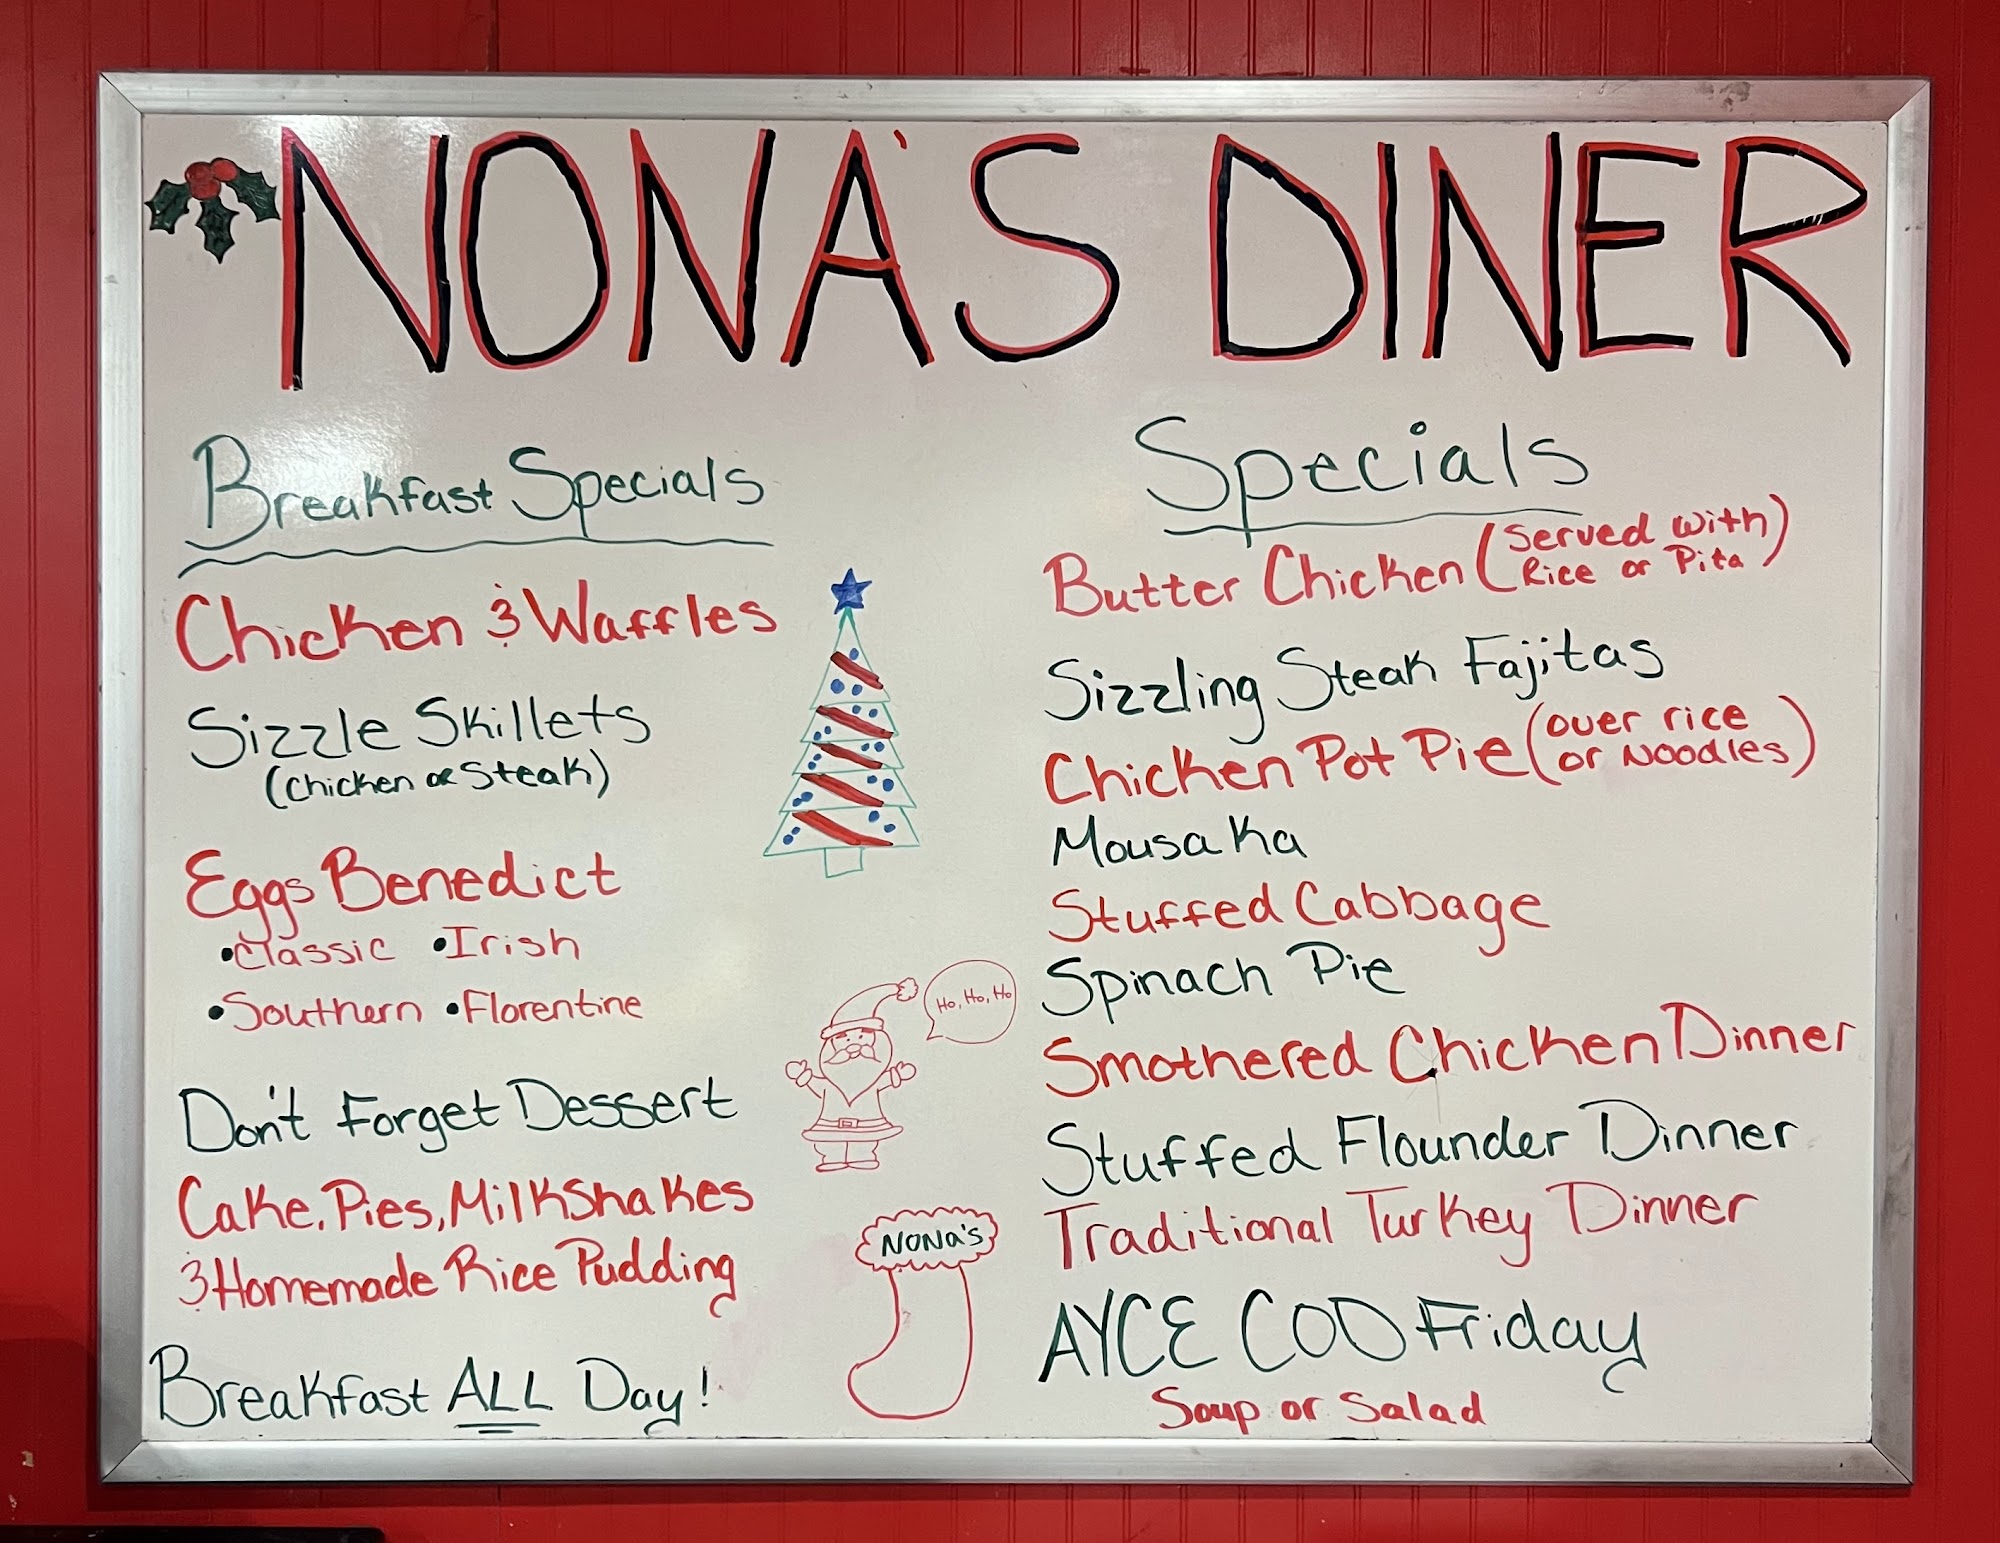 NONA'S DINER
Breakfast Specials
Chicken & Waffles
Sizzle Skillets
(Chicken or Steak)
Eggs Benedict
•Classic •Irish
•Southern •Florentine
Don't Forget Dessert
Cake, Pies, Milkshakes
& Homemade Rice Pudding
Breakfast ALL Day!
Ho, Ho, Ho
NONA'S
Specials
Butter Chicken (Served with
Rice or Pita)
Sizzling Steak Fajitas
Chicken Pot Pie (over rice
or Noodles)
Mousaka
Stuffed Cabbage
Spinach Pie
Smothered Chicken Dinner
Stuffed Flounder Dinner
Traditional Turkey Dinner
AYCE COD Friday
Soup or Salad